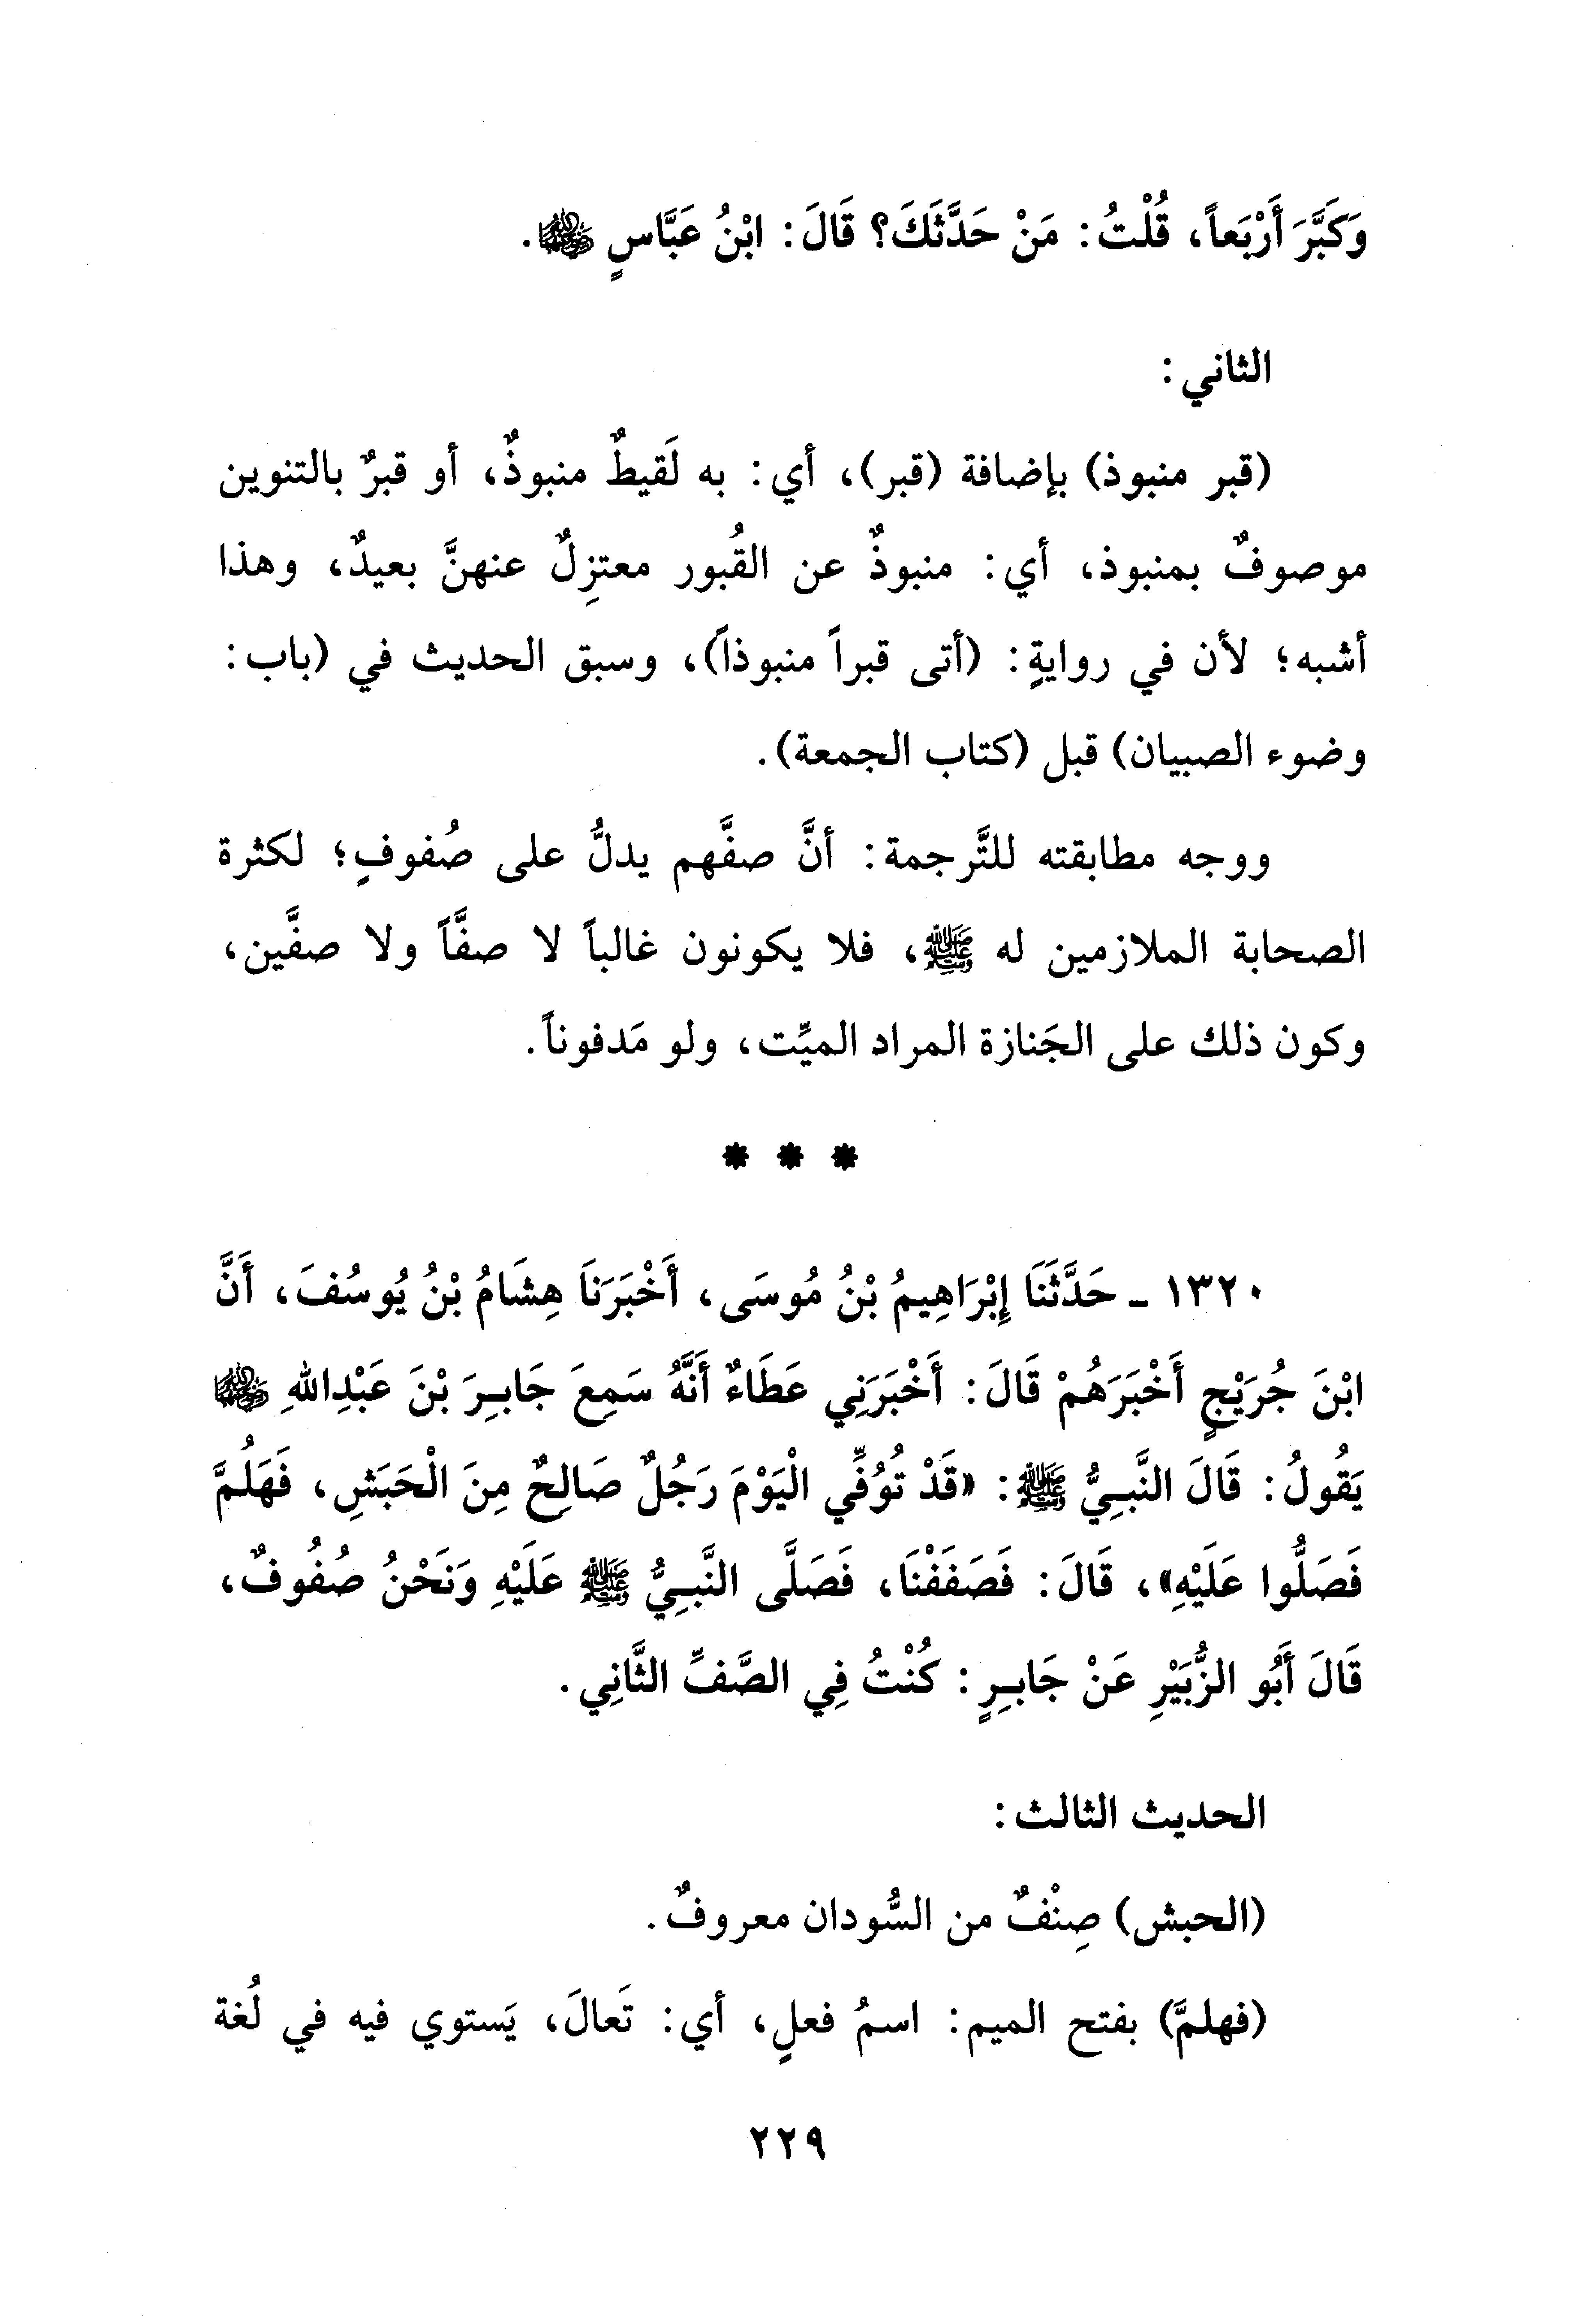 وَكَبَّرَ أَرْبَعاً، قُلْتُ: مَنْ حَدَّثَكَ؟ قَالَ: ابْنُ عَبَّاسٍ ﵄.
الثاني:
(قبر منبوذ) بإضافة (قبر)، أي: به لَقيطٌ منبوذٌ، أو قبرٌ بالتنوين
موصوفٌ بمنبوذ، أي: منبوذٌ عن القُبور معتزِلٌ عنهنَّ بعيدٌ، وهذا
أشبه؛ لأن في روايةٍ: (أتى قبراً منبوذاً)، وسبق الحديث في (باب:
وضوء الصبيان) قبل (كتاب الجمعة).
ووجه مطابقته للتَّرجمة: أنَّ صفَّهم يدلُّ على صُفوفٍ؛ لكثرة
الصحابة الملازمين له ﷺ، فلا يكونون غالباً لا صفَّاً ولا صفَّين،
وكون ذلك على الجَنازة المراد الميِّت، ولو مَدفوناً.
* * *
١٣٢٠ ـ حَدَّثَنَا إِبْرَاهِيمُ بْنُ مُوسَى، أَخْبَرَنَا هِشَامُ بْنُ يُوسُفَ، أَنَّ
ابْنَ جُرَيْجٍ أَخْبَرَهُمْ قَالَ: أَخْبَرَنِي عَطَاءٌ أَنَّهُ سَمِعَ جَابِرَ بْنَ عَبْدِاللهِ ﵄
يَقُولُ: قَالَ النَّبِيُّ ﷺ: «قَدْ تُوُفِّي الْيَوْمَ رَجُلٌ صَالِحٌ مِنَ الْحَبَشِ، فَهَلُمَّ
فَصَلُّوا عَلَيْهِ»، قَالَ: فَصَفَفْنَا، فَصَلَّى النَّبِيُّ ﷺ عَلَيْهِ وَنَحْنُ صُفُوفٌ،
قَالَ أَبُو الزُّبَيْرِ عَنْ جَابِرٍ: كُنْتُ فِي الصَّفِّ الثَّانِي.
الحديث الثالث:
(الحبش) صِنْفٌ من السُّودان معروفٌ.
(فهلمَّ) بفتح الميم: اسمُ فعلٍ، أي: تَعالَ، يَستوي فيه في لُغة
٢٢٩